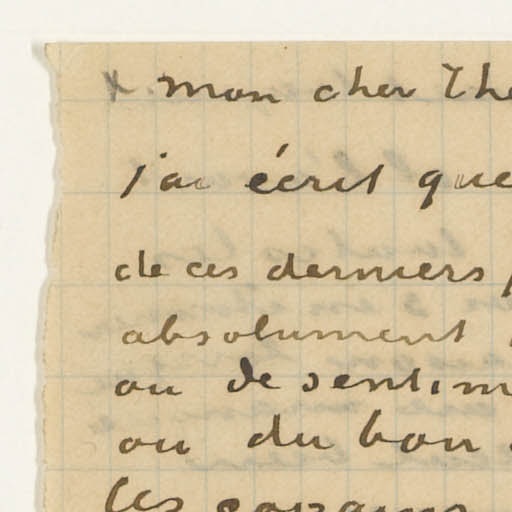 x mon cher The
j'ai écrit que
de ces derniers
absolument
ou de sentim
ou du bon
les copains